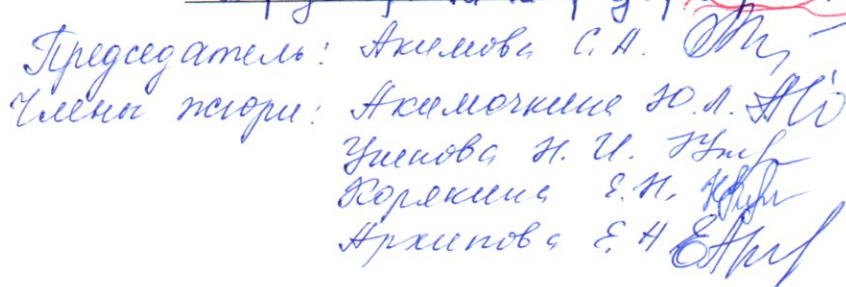 Председатель: Акимова С.А.
Члены жюри: Акимочкина Ю.Л.
Н.И.
Корякина Е.Н.
Архипова Е.А